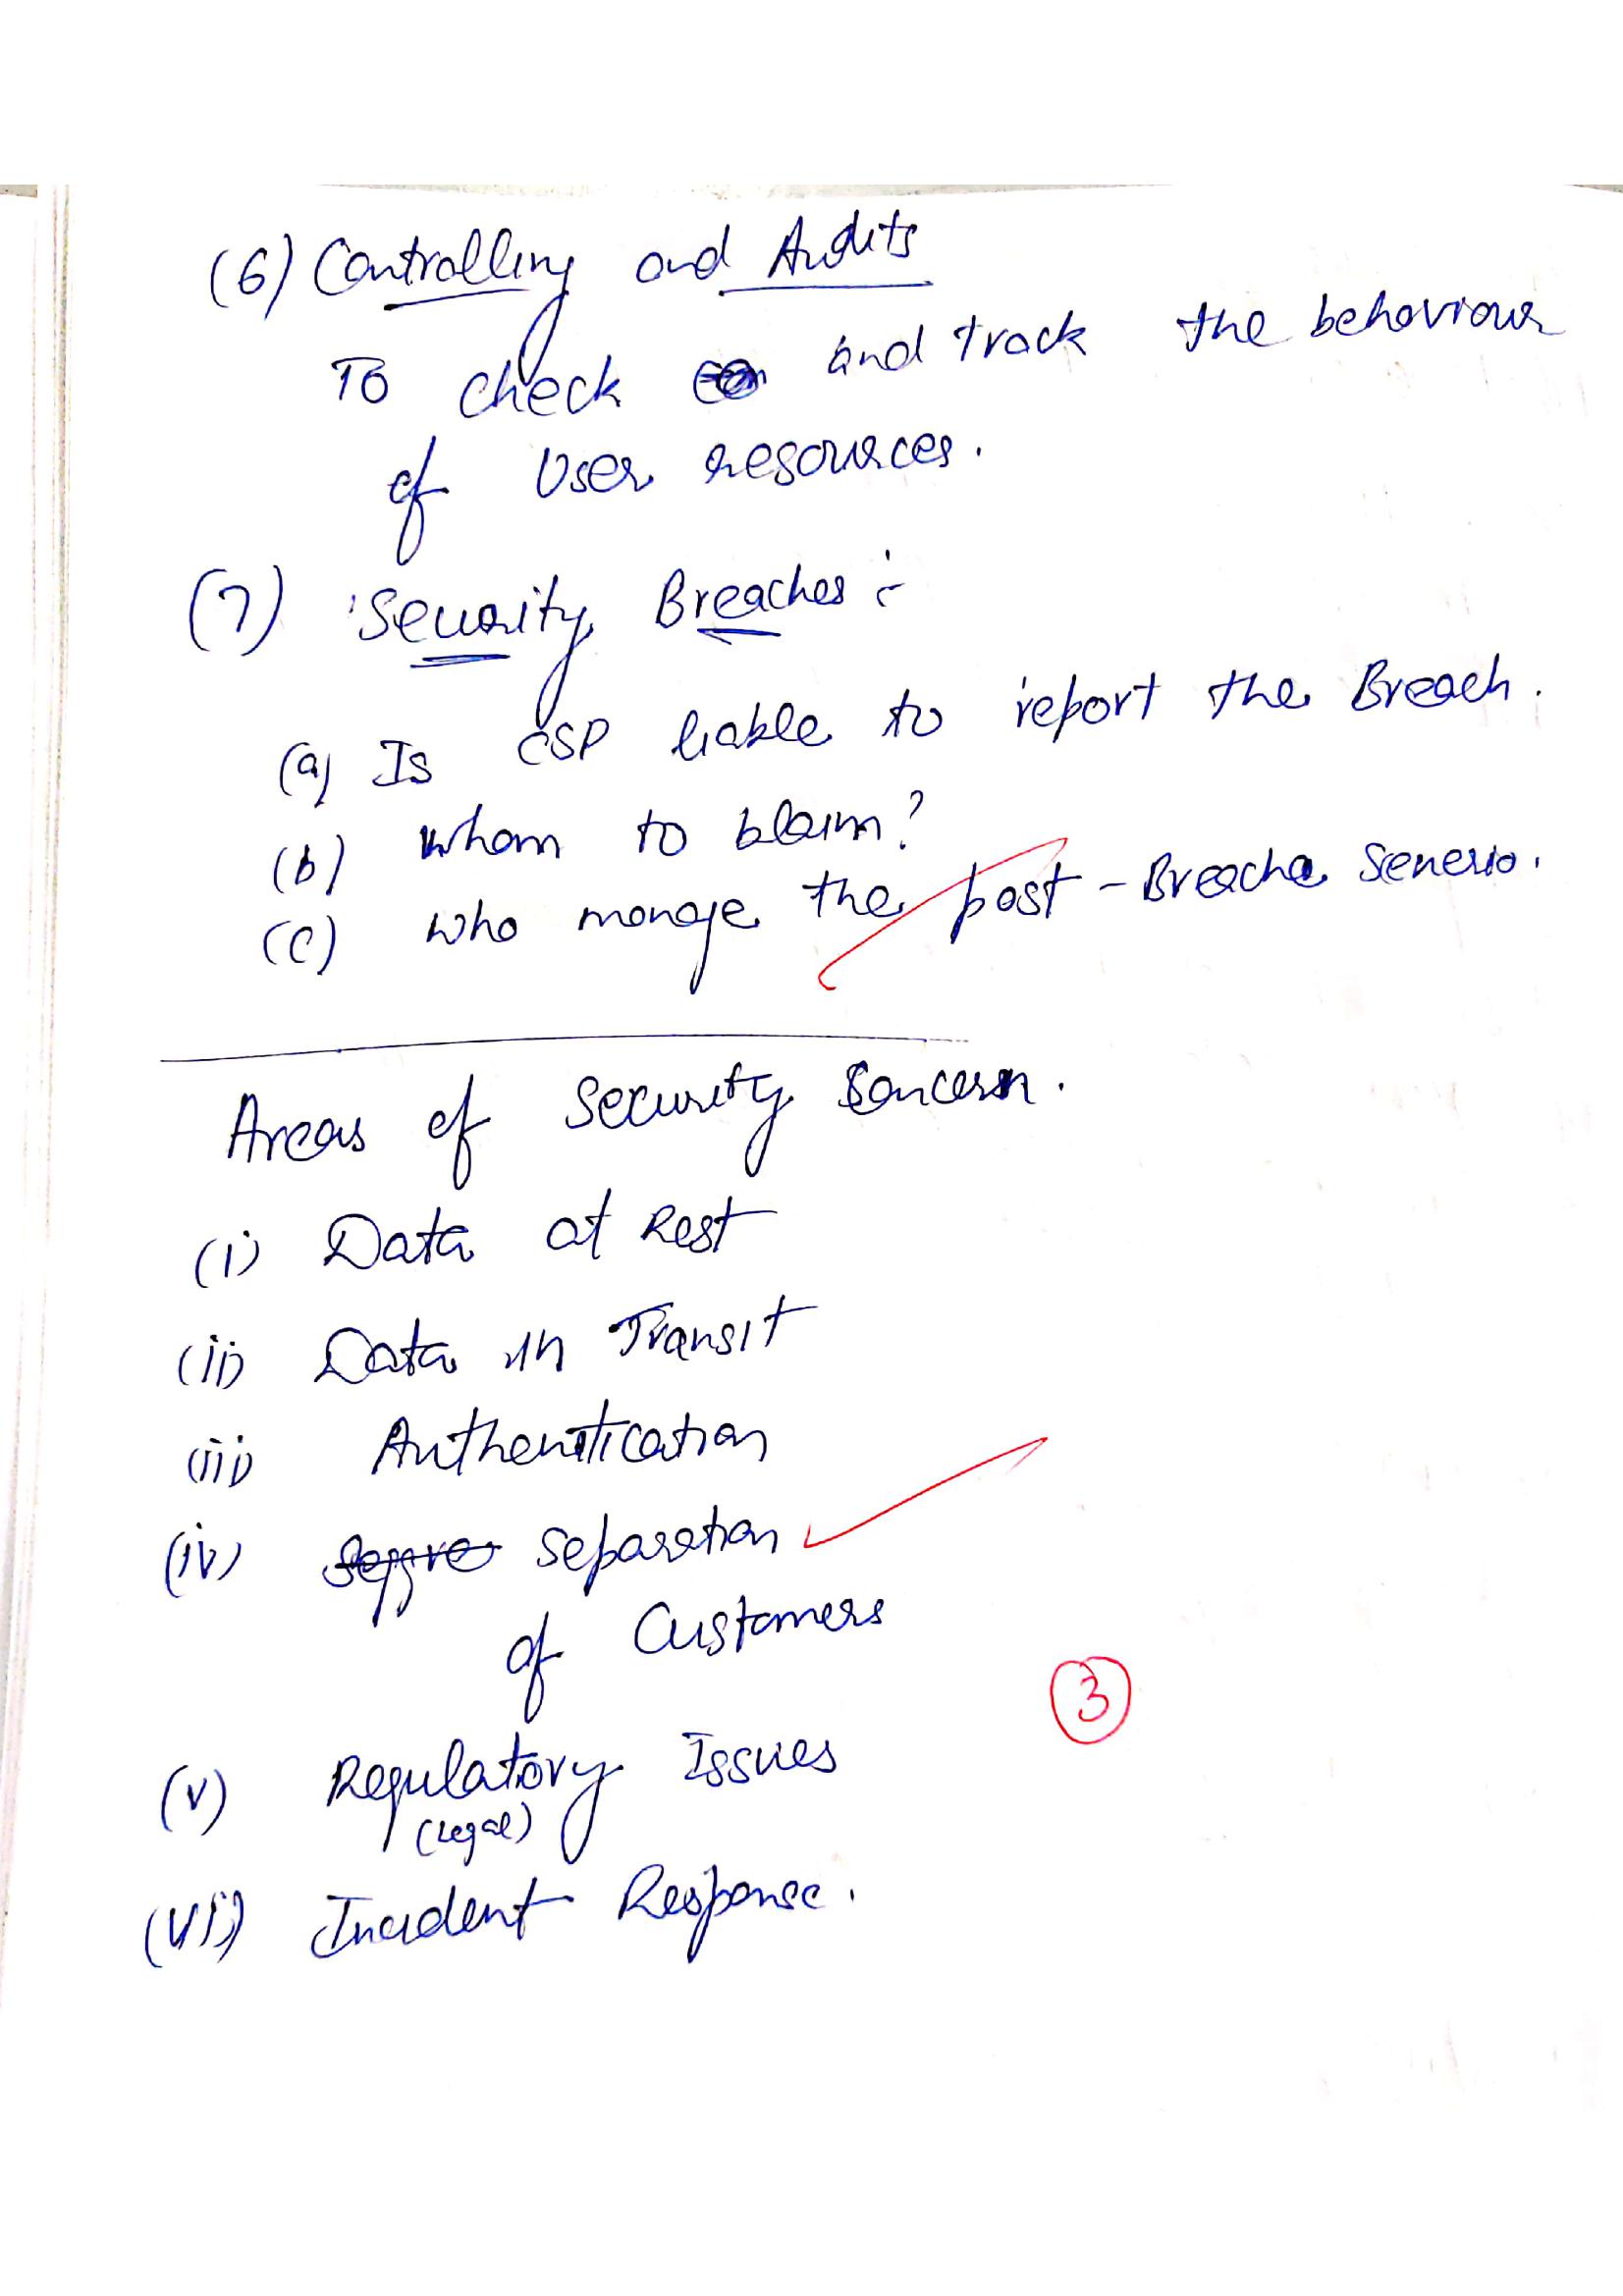 (6) Controlling and Audits
To check and track the behaviour
of User resources.
(7) Security Breaches :-
(a) Is CSP liable to report the Breach.
(b) whom to blaim?
(c) who manage the post - Breache Senerio.
Areas of Security Concern.
(i) Data at Rest
(ii) Data in Transit
(iii) Authentication
(iv) Seppre Separation
of Customers
3
(v) Regulatory Issues
(Legal)
(vi) Incident Response.